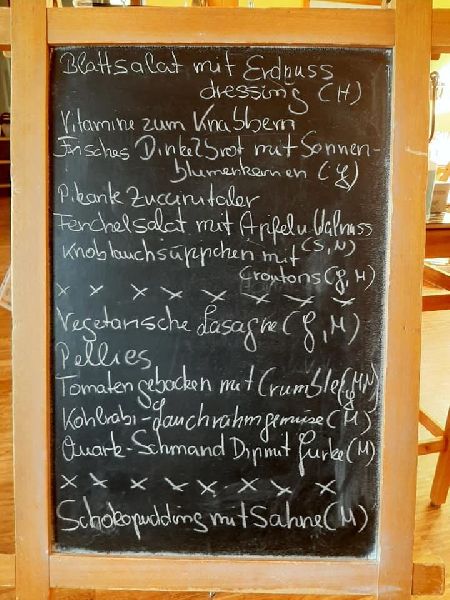 Blattsalat mit Erdnuss
dressing (H)
Vitamine zum Knabbern
Frisches Dinkelbrot mit Sonnen-
blumenkernen (G)
Pikante Zuccinitaler
Fenchelsalat mit Apfel u Walnuss
(S, N)
Knoblauchsüppchen mit
Croutons (G, M)
x x x x x x x x
Vegetarische Lasagne (G, M)
Pellies
Tomaten gebacken mit Crumble
Kohlrabi-Lauchrahmgemüse (M)
Quark-Schmand Dip mit Gurke (M)
x x x x x x x
Schokopudding mit Sahne (M)